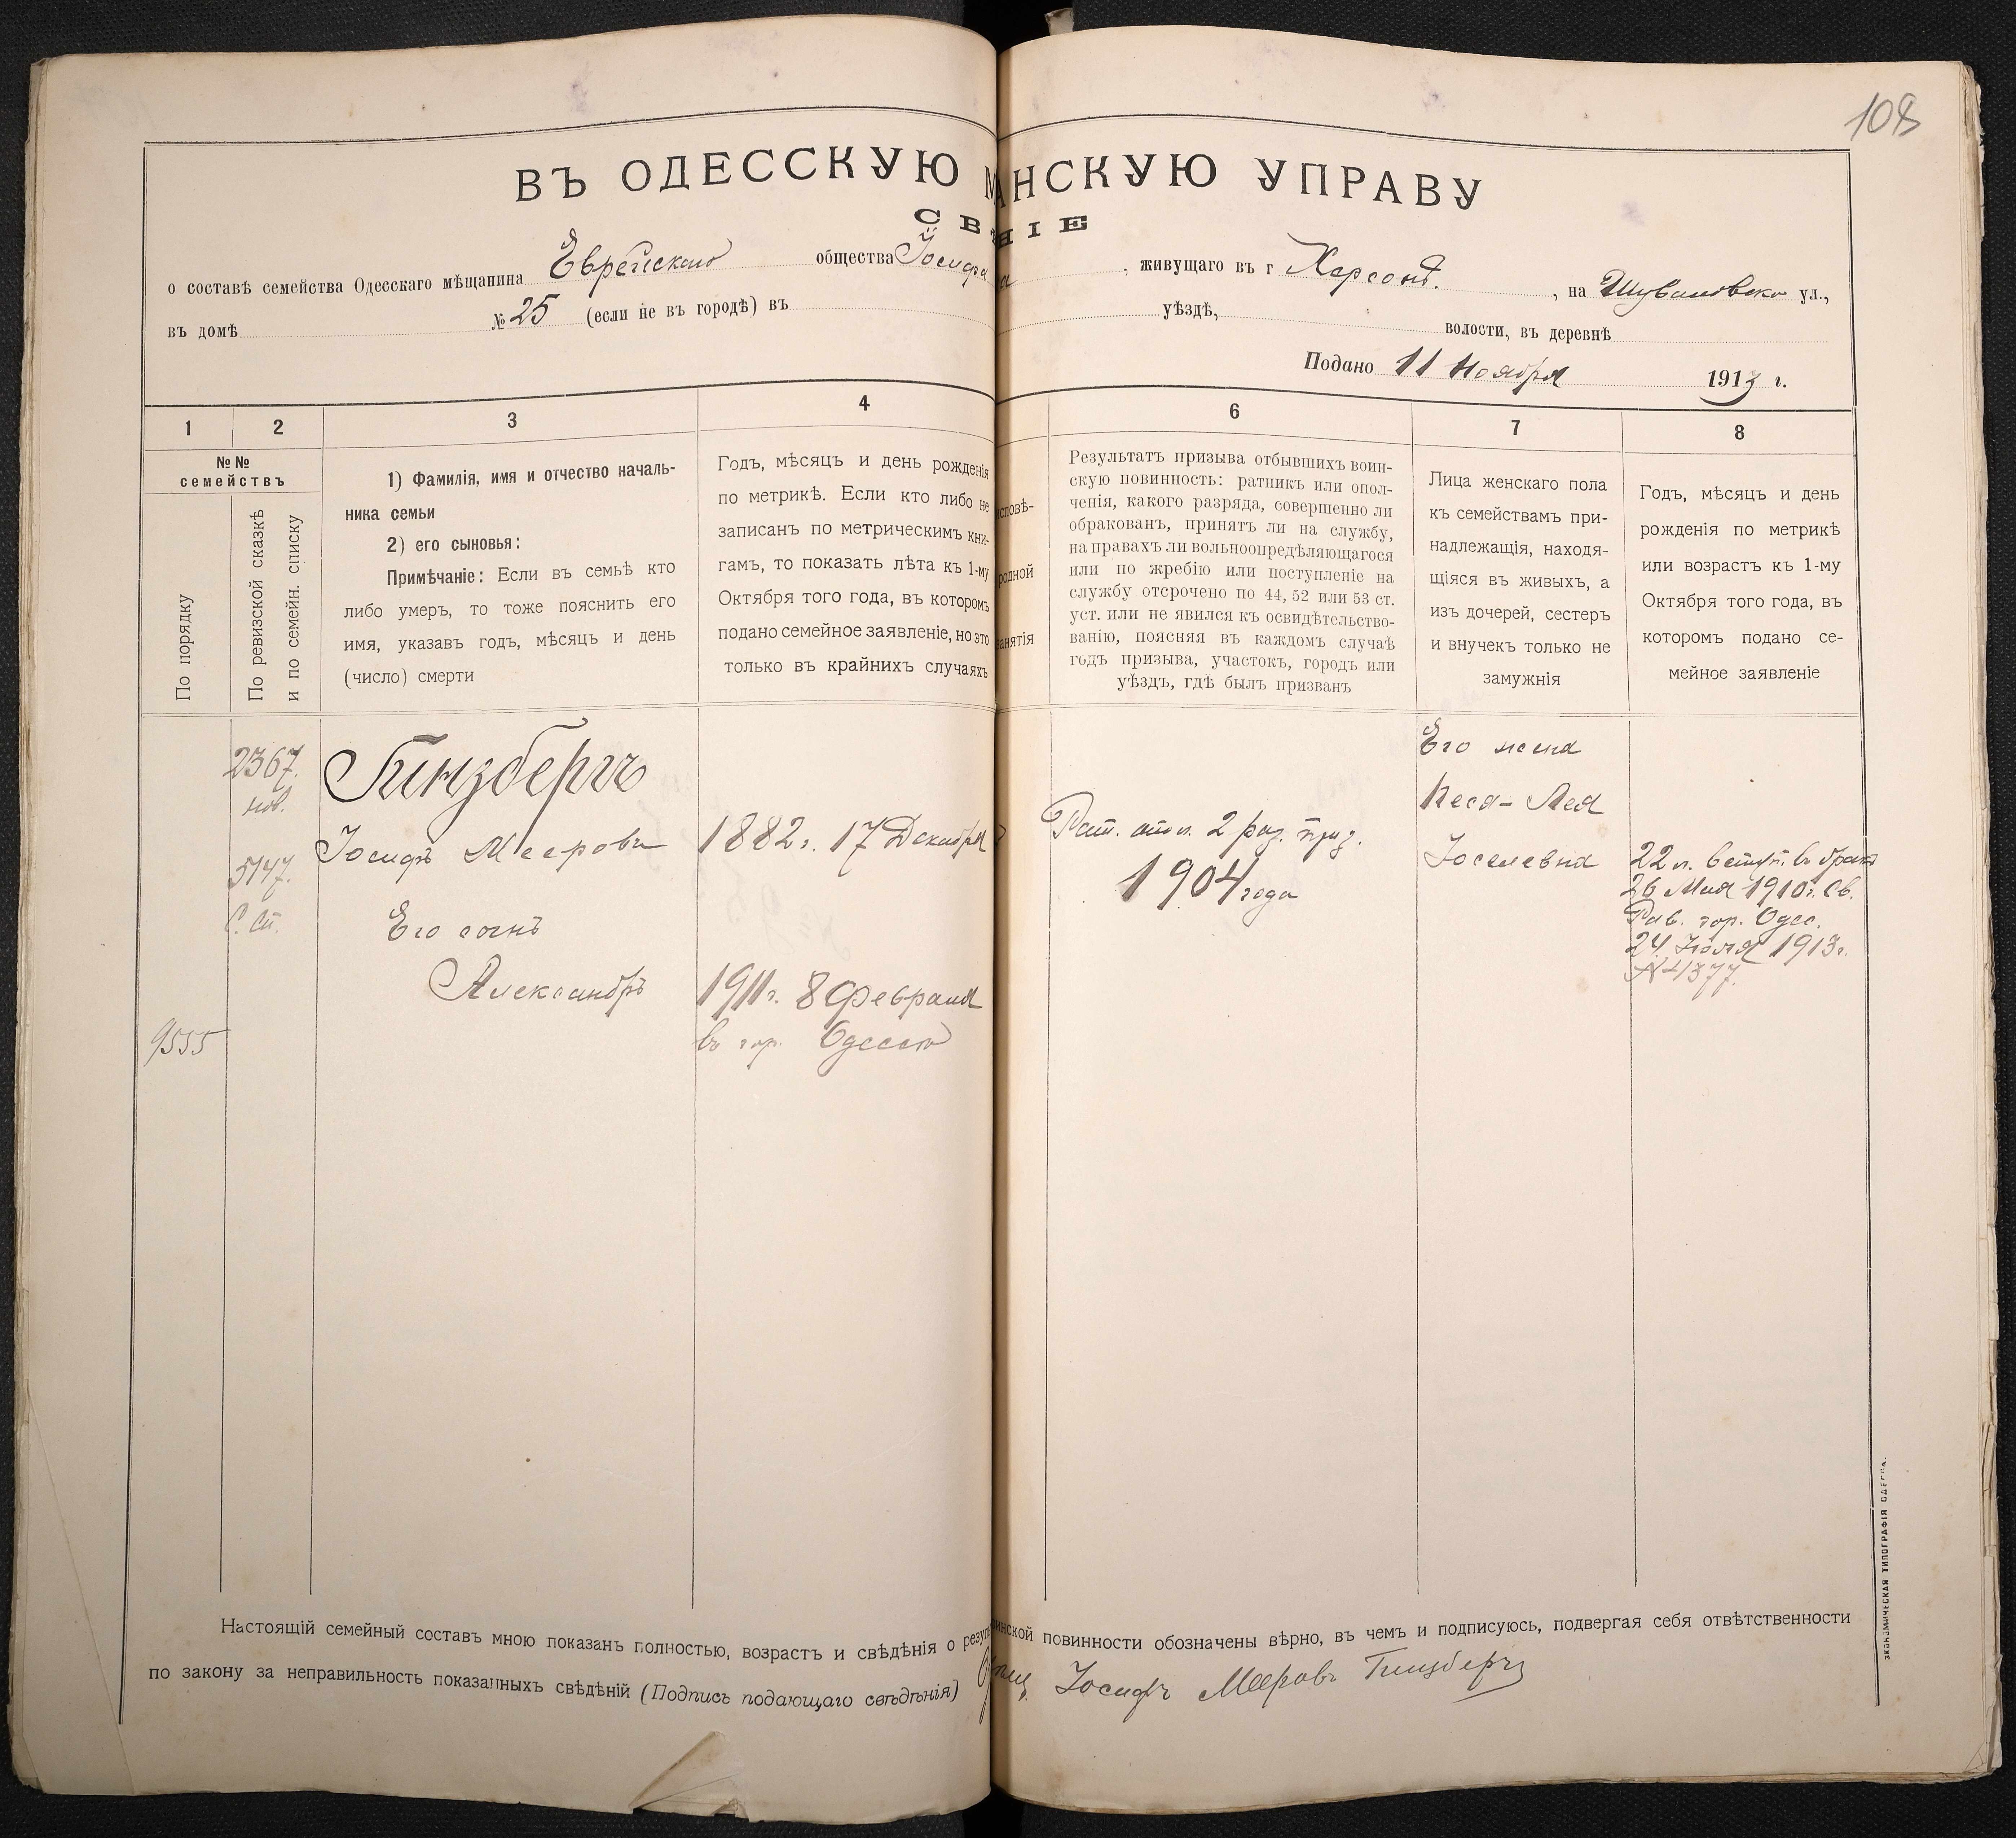 108
ВЪ ОДЕССКУЮ М АНСКУЮ УПРАВУ
СВ НІЕ
о составѣ семейства Одесскаго мѣщанина Еврейскаго общества Іосифа , живущаго въ г Херсонѣ. , на ул.,
въ домѣ № 25 (если не въ городѣ) въ уѣздѣ, волости, въ деревнѣ
Подано 11 Ноября 1913 г.
1 2 3 4 6 7 8
№№ семействъ
По порядку
По ревизской сказкѣ
и по семейн. списку
1) Фамилія, имя и отчество началь-
ника семьи
2) его сыновья:
Примѣчаніе: Если въ семьѣ кто
либо умеръ, то тоже пояснить его
имя, указавъ годъ, мѣсяцъ и день
(число) смерти
Годъ, мѣсяцъ и день рожденія
по метрикѣ. Если кто либо не
записанъ по метрическимъ кни-
гамъ, то показать лѣта къ 1-му
Октября того года, въ которомъ
подано семейное заявленіе, но это
только въ крайнихъ случаяхъ
исповѣ-
родной
занятія
Результатъ призыва отбывшихъ воин-
скую повинность: ратникъ или опол-
ченія, какого разряда, совершенно ли
обракованъ, принятъ ли на службу,
на правахъ ли вольноопредѣляющагося
или по жребію или поступленіе на
службу отсрочено по 44, 52 или 53 ст.
уст. или не явился къ освидѣтельство-
ванію, поясняя въ каждомъ случаѣ
годъ призыва, участокъ, городъ или
уѣздъ, гдѣ былъ призванъ
Лица женскаго пола
къ семействамъ при-
надлежащія, находя-
щіяся въ живыхъ, а
изъ дочерей, сестеръ
и внучекъ только не
замужнія
Годъ, мѣсяцъ и день
рожденія по метрикѣ
или возрастъ къ 1-му
Октября того года, въ
которомъ подано се-
мейное заявленіе
2367.
нов.
5147.
С. сп.
9555
Гинзбергъ
Іосифъ Мееровъ
Его сынъ
Александръ
1882 г. 17 Декабря
1911 г. 8 Февраля
въ гор. Одессѣ
Рат. опол. 2 раз. приз.
1904 года
Его жена
Песя-Лея
Іоселевна
22 л. вступ. въ бракъ
26 Мая 1910 г. Св.
Рав. гор. Одес.
24 Іюля 1913 г.
№ 4377.
Настоящій семейный составъ мною показанъ полностью, возрастъ и свѣдѣнія о резуль инской повинности обозначены вѣрно, въ чемъ и подписуюсь, подвергая себя отвѣтственности
по закону за неправильность показанныхъ свѣдѣній (Подпись подающаго свѣдѣнія) Іосифъ Мееровъ Гинзбергъ
ЭКОНОМИЧЕСКАЯ ТИПОГРАФІЯ ОДЕССА.